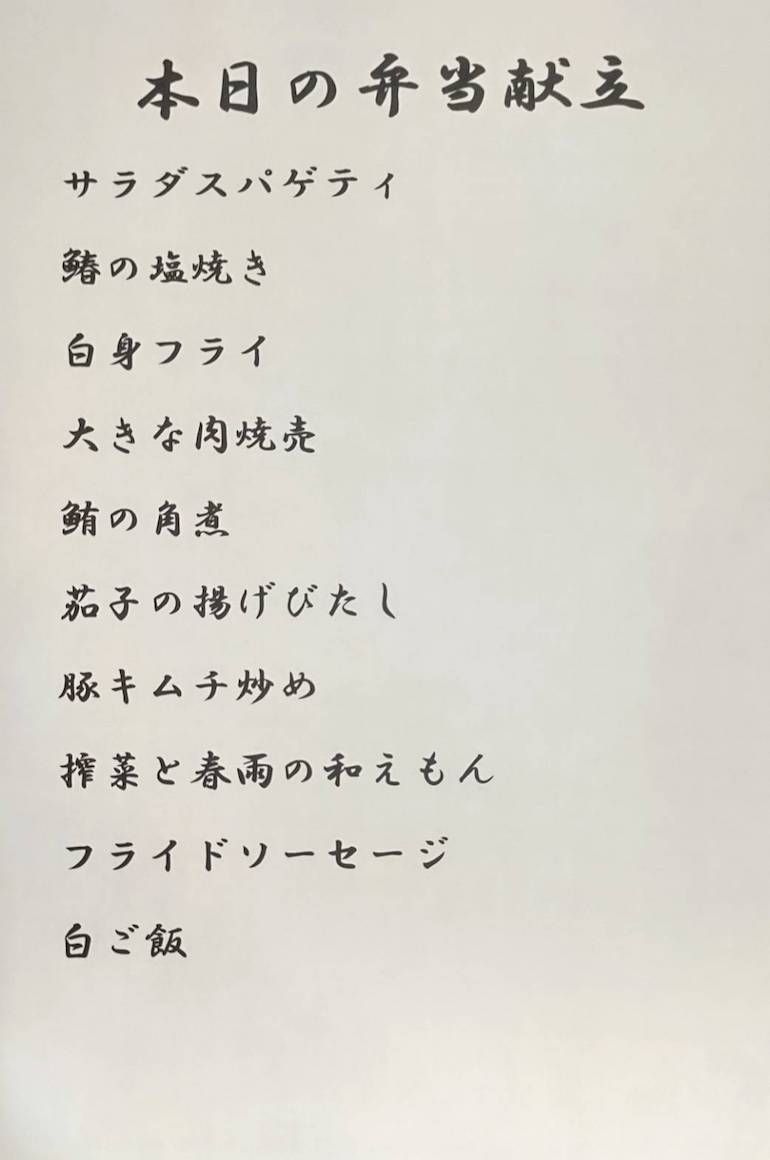 本日の弁当献立
サラダスパゲティ
鰆の塩焼き
白身フライ
大きな肉焼売
鮪の角煮
茄子の揚げびたし
豚キムチ炒め
搾菜と春雨の和えもん
フライドソーセージ
白ご飯